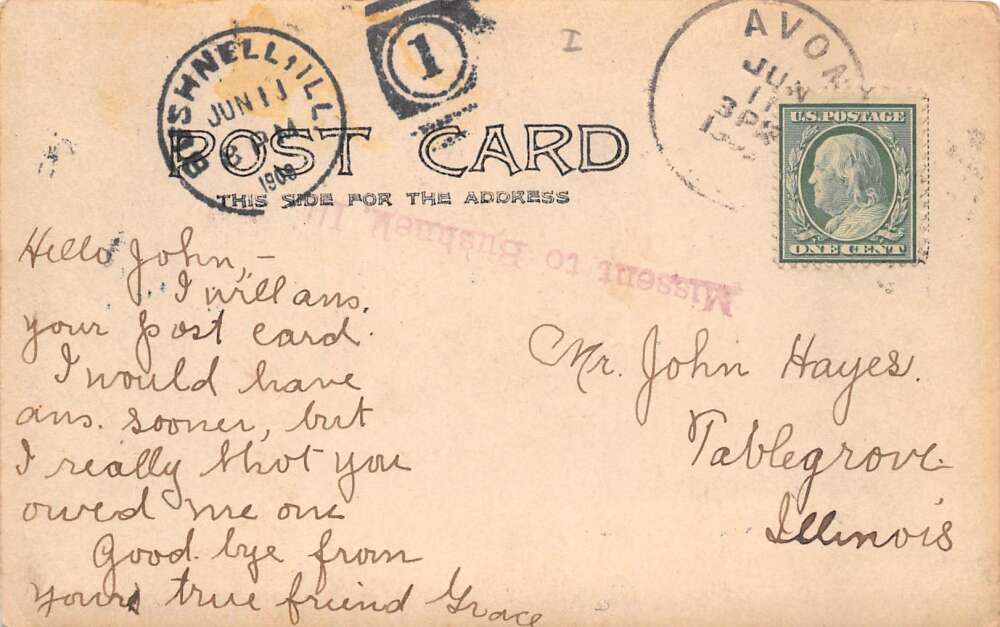 BUSHNELL, ILL.
JUN 11
8 PM
1909
1
I
AVON
JUN
11
3PM
U.S. POSTAGE
ONE CENT
POST CARD
THIS SIDE FOR THE ADDRESS
Missent to Bushnell, Ill
Hello John,-
I will ans.
your post card.
I would have
ans. sooner, but
I really thot you
owed me one
Good. bye from
your true friend Grace
Mr. John Hayes.
Tablegrove.
Illinois